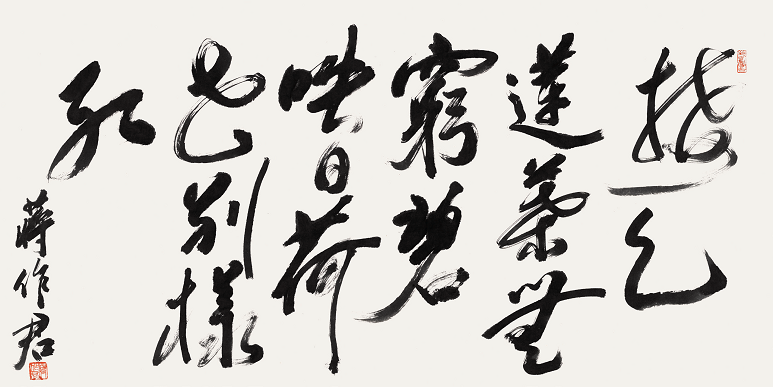 接天
蓮葉無
窮碧
映日荷
花别樣
红
蒋作君